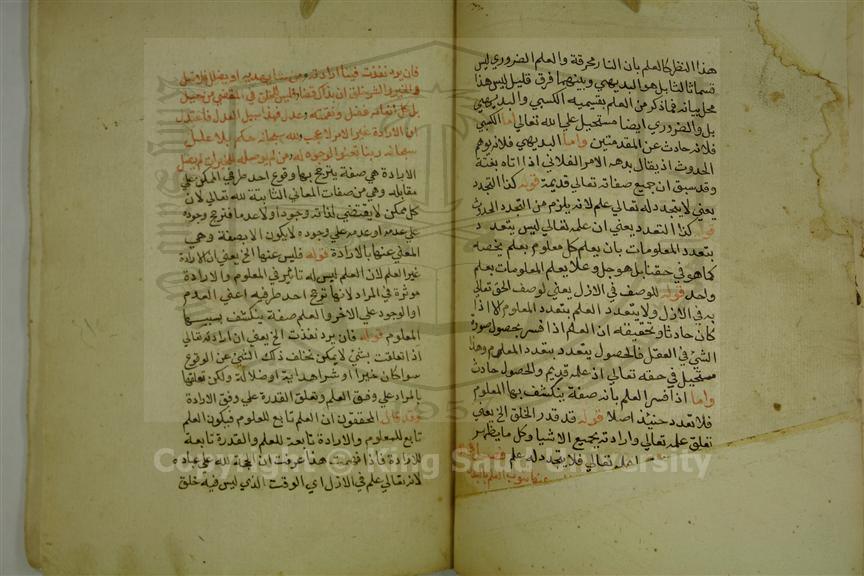 هذا النقل كالعلم بان النار محرقة والعلم الضروري ليس
قسما ثالثا بل هو البديهي وبينهما فرق قليل ليس هذا
محل بيانه فما ذكر من العلم بقسميه الكسبي والبديهي
بل والضروري ايضا مستحيل على الله تعالى اما الكسبي
فلانه حادث عن المقدمتين واما البديهي فلانه يوهم
الحدوث اذ يقال بدهه الامر الفلاني اذا اتاه بغتة
وقد سبق ان جميع صفاته تعالى قديمة قوله كذا التجدد
يعني لا يتجدد له تعالى علم لانه يلزم من التجدد الحدوث
قوله كذا التعدد يعني ان علمه تعالى ليس يتعدد
بتعدد المعلومات بان يعلم كل معلوم بعلم يخصه
كما هو في حقنا بل هو جل وعلا يعلم المعلومات بعلم
واحد قوله للوصف في الازل يعني لوصف الحق تعالى
به في الازل ولا يتعدد العلم بتعدد المعلوم الا اذا
كان حادثا وتحقيقه ان العلم اذا فسر بحصول صورة
الشئ في العقل فالحصول يتعدد بتعدد المعلوم وهذا
مستحيل في حقه تعالى اذ علمه قديم والحصول حادث
واما اذا فسر العلم بانه صفة ينكشف بها المعلوم
فلا تعدد حينئذ اصلا قوله قد قدر الخلق الخ يعني
تعلق علمه تعالى وارادته بجميع الاشيا وكل ما يظهر
تعالى فلا يتجدد له علم
فان يرد نفذت فينا ارادته ومن يشا يهديه او يضلل فلا تمل
بل كل نعمائه فضل ونقمته وعدل فهذا سبيل العدل فاعتدل
ان الارادة غير الامر لا عجب لله سبحانه حكم بلا علل
سبحانه ربنا تعنو الوجوه له ومن لم يوصله للخيرات لم يصل
الارادة هي صفة يترجح بها وقوع احد طرفي الممكن على
مقابله وهي من صفات المعاني الثابتة لله تعالى لان
كل ممكن لا يقتضي لذاته وجودا ولا عدما فترجح وجوده
على عدمه او عدمه على وجوده لا يكون الا بصفة وهي
المعني عنها بالارادة قوله فليس عنها الخ يعني ان الارادة
غير العلم لان العلم ليس له تاثير في المعلوم والارادة
موثرة في المراد لانها ترجح احد طرفيه اعني العدم
او الوجود على الاخر والعلم صفة ينكشف بسببها
المعلوم قوله فان يرد نفذت الخ يعني ان ارادته تعالى
اذا تعلقت بشئ لا يمكن تخلف ذلك الشئ عن الوقوع
سوا كان خيرا او شرا هداية او ضلالة ولكن تعلقها
بالمراد على وفق العلم وتعلق القدرة على وفق الارادة
وقد قال المحققون ان العلم تابع للمعلوم فيكون العلم
تابع للمعلوم والارادة تابعة للعلم والقدرة تابعة
للارادة فاذا فهمت هذا عرفت ان الحجة لله على عباده
لانه تعالى علم في الازل اي الوقت الذي ليس فيه خلق
Copyright © King Saud University